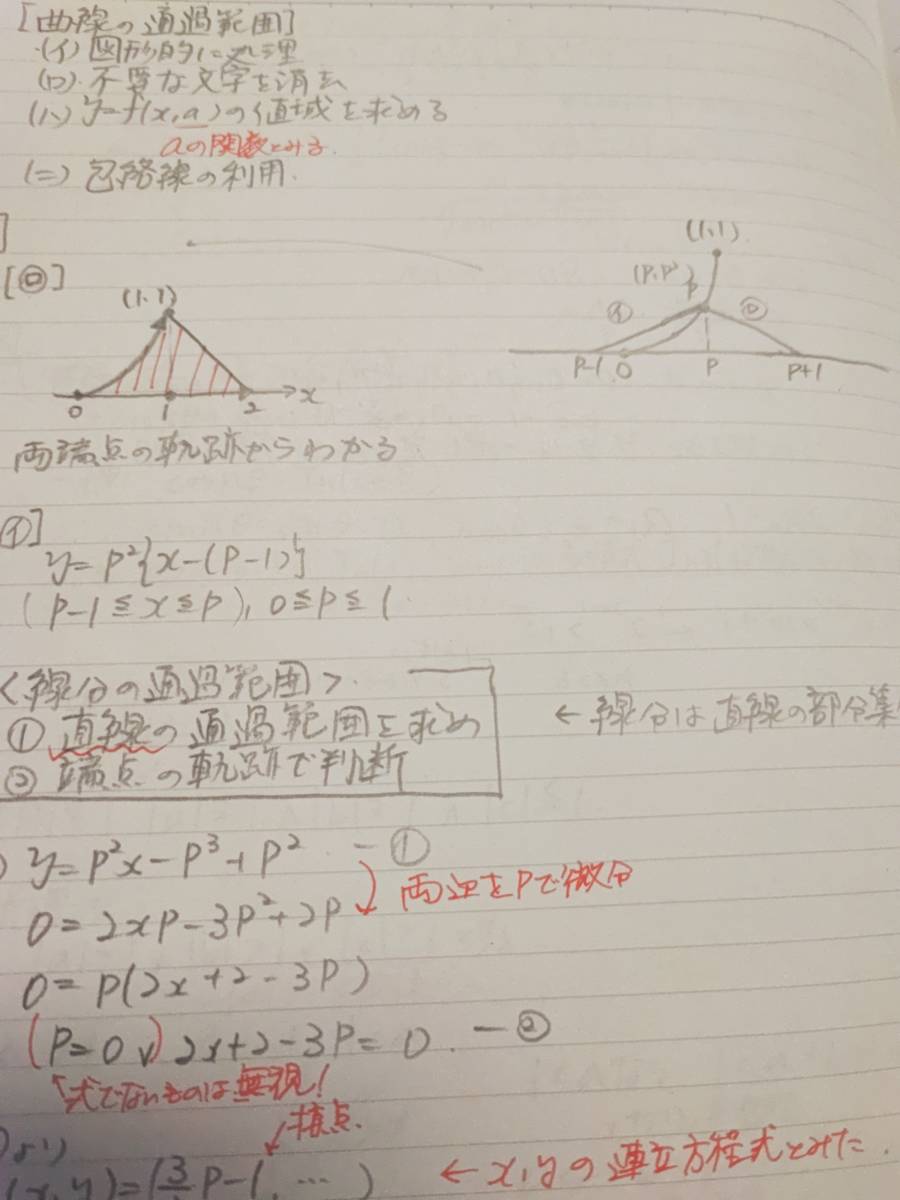 [曲線の通過範囲]
・(イ) 図形的に処理
(ロ) 不要な文字を消去
(ハ) y=f(x,a)の値域を求める
aの関数とみる.
(ニ) 包絡線の利用.
]
[㋺]
(1,1)
0 1 2 x
(1,1)
(P,P²)
P
㋑ ㋺
P-1 0 P P+1
両端点の軌跡からわかる
㋑]
y=P²{x-(P-1)}
(P-1≦x≦P), 0≦P≦1
<線分の通過範囲>
① 直線の通過範囲を求め
② 端点の軌跡で判断
←線分は直線の部分集
) y=P²x-P³+P² -①
両辺をPで微分
0=2xP-3P²+2P
0=P(2x+2-3P)
(P=0 ∨) 2x+2-3P=0. -②
式でないものは無視!
接点.
より
(x,y)=(3/ P-1, …)
←x,yの連立方程式とみた.